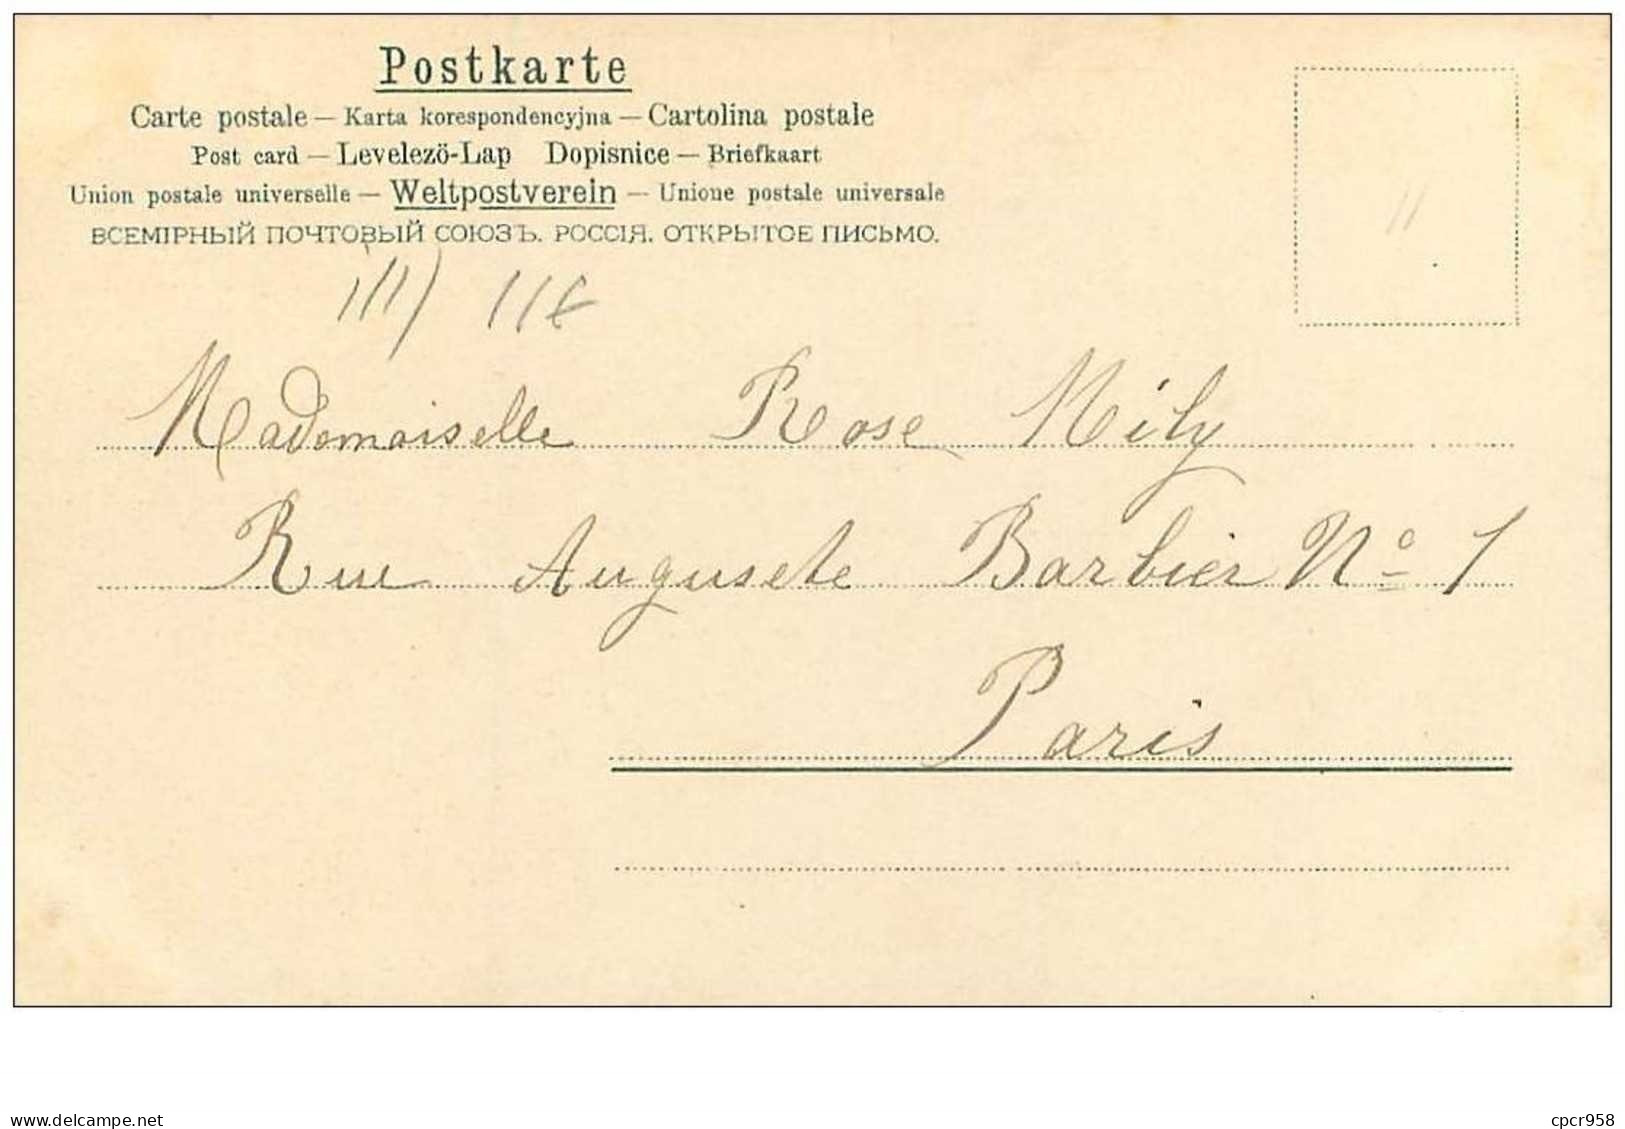 Postkarte
Carte postale — Karta korespondencyjna — Cartolina postale
Post card — Levelezö-Lap Dopisnice — Briefkaart
Union postale universelle — Weltpostverein — Unione postale universale
ВСЕМІРНЫЙ ПОЧТОВЫЙ СОЮЗЪ. РОССІЯ. ОТКРЫТОЕ ПИСЬМО.
11
Mademoiselle Rose Mily
Rue Auguste Barbier Nº 1
Paris
delcampe.net
cpcr958